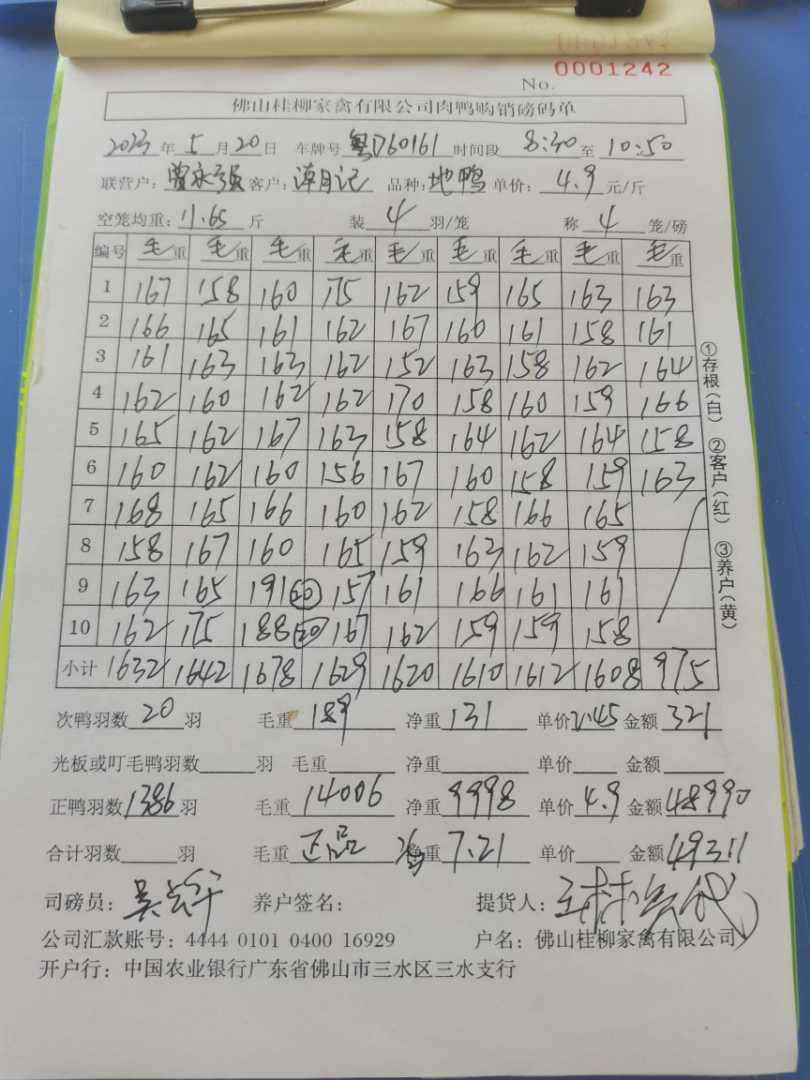 No. 0001242
佛山桂柳家禽有限公司肉鸭购销磅码单
2023年5月20日 车牌号 粤D60161 时间段 8:30 至 10:50
联营户: 曾永强 客户: 谭月记 品种: 地鸭 单价: 4.9 元/斤
空笼均重: 11.65 斤 装 4 羽/笼 称 4 笼/磅
编号 毛重 毛重 毛重 毛重 毛重 毛重 毛重 毛重 毛重
1 167 158 160 175 162 159 165 163 163
2 166 165 161 162 167 160 161 158 161
3 161 163 163 162 152 163 158 162 164
4 162 160 162 162 170 158 160 159 166
5 165 162 167 163 158 164 162 164 158
6 160 162 160 156 167 160 158 159 163
7 168 165 166 160 162 158 166 165
8 158 167 160 165 159 163 162 159
9 163 165 191 20 157 161 166 161 161
10 162 175 188 20 167 162 159 159 158
小计 1632 1642 1678 1629 1620 1610 1612 1608 975
①存根(白) ②客户(红) ③养户(黄)
次鸭羽数 20 羽 毛重 189 净重 131 单价 2.45 金额 321
光板或叮毛鸭羽数 羽 毛重 净重 单价 金额
正鸭羽数 1386 羽 毛重 14006 净重 9998 单价 4.9 金额 48990
合计羽数 羽 毛重 正品 净重 7.21 单价 金额 49311
司磅员: 养户签名: 提货人:
公司汇款账号: 4444 0101 0400 16929 户名: 佛山桂柳家禽有限公司
开户行: 中国农业银行广东省佛山市三水区三水支行